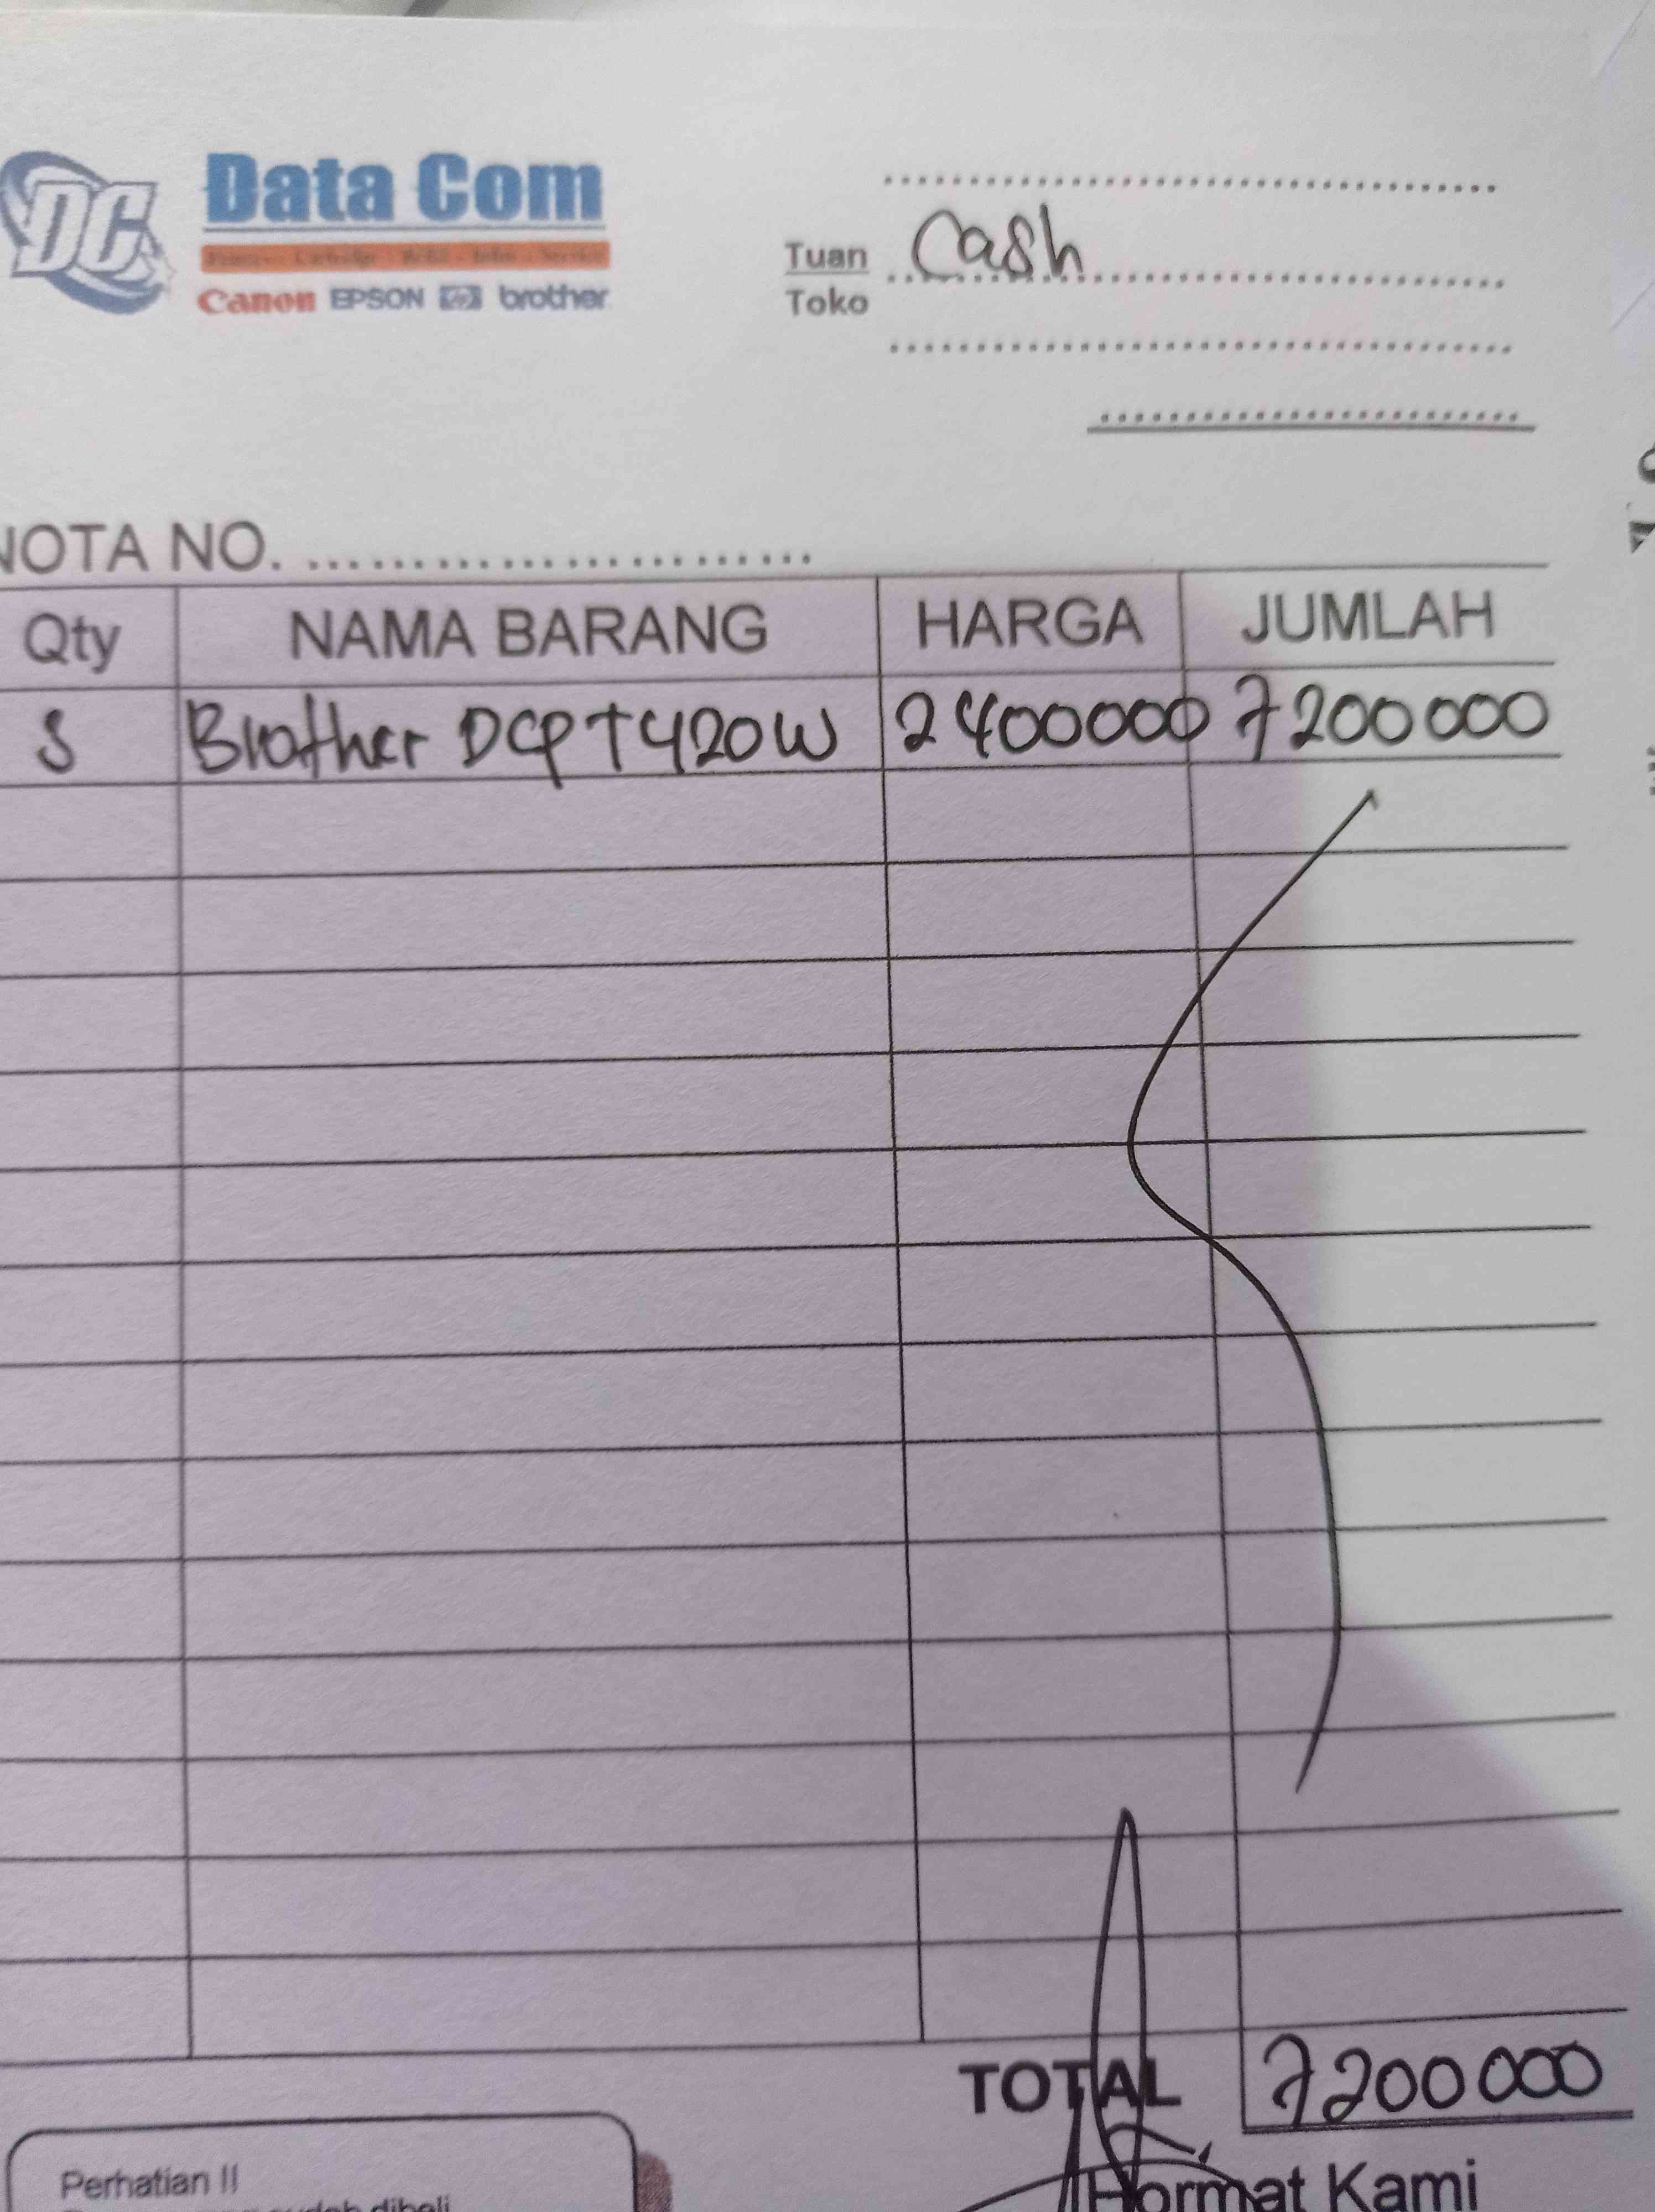 DC
Data Com
Canon EPSON hp brother
Tuan Cash
Toko
NOTA NO.
Qty NAMA BARANG HARGA JUMLAH
3 Brother DCP T420W 2400000 7200000
TOTAL 7200000
Perhatian !!
sudah dibeli
Hormat Kami